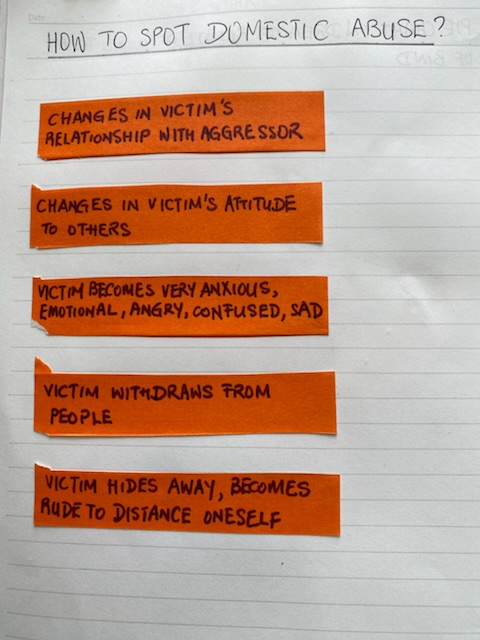 Date
HOW TO SPOT DOMESTIC ABUSE?
CHANGES IN VICTIM'S
RELATIONSHIP WITH AGGRESSOR
CHANGES IN VICTIM'S ATTITUDE
TO OTHERS
VICTIM BECOMES VERY ANXIOUS,
EMOTIONAL, ANGRY, CONFUSED, SAD
VICTIM WITHDRAWS FROM
PEOPLE
VICTIM HIDES AWAY, BECOMES
RUDE TO DISTANCE ONESELF